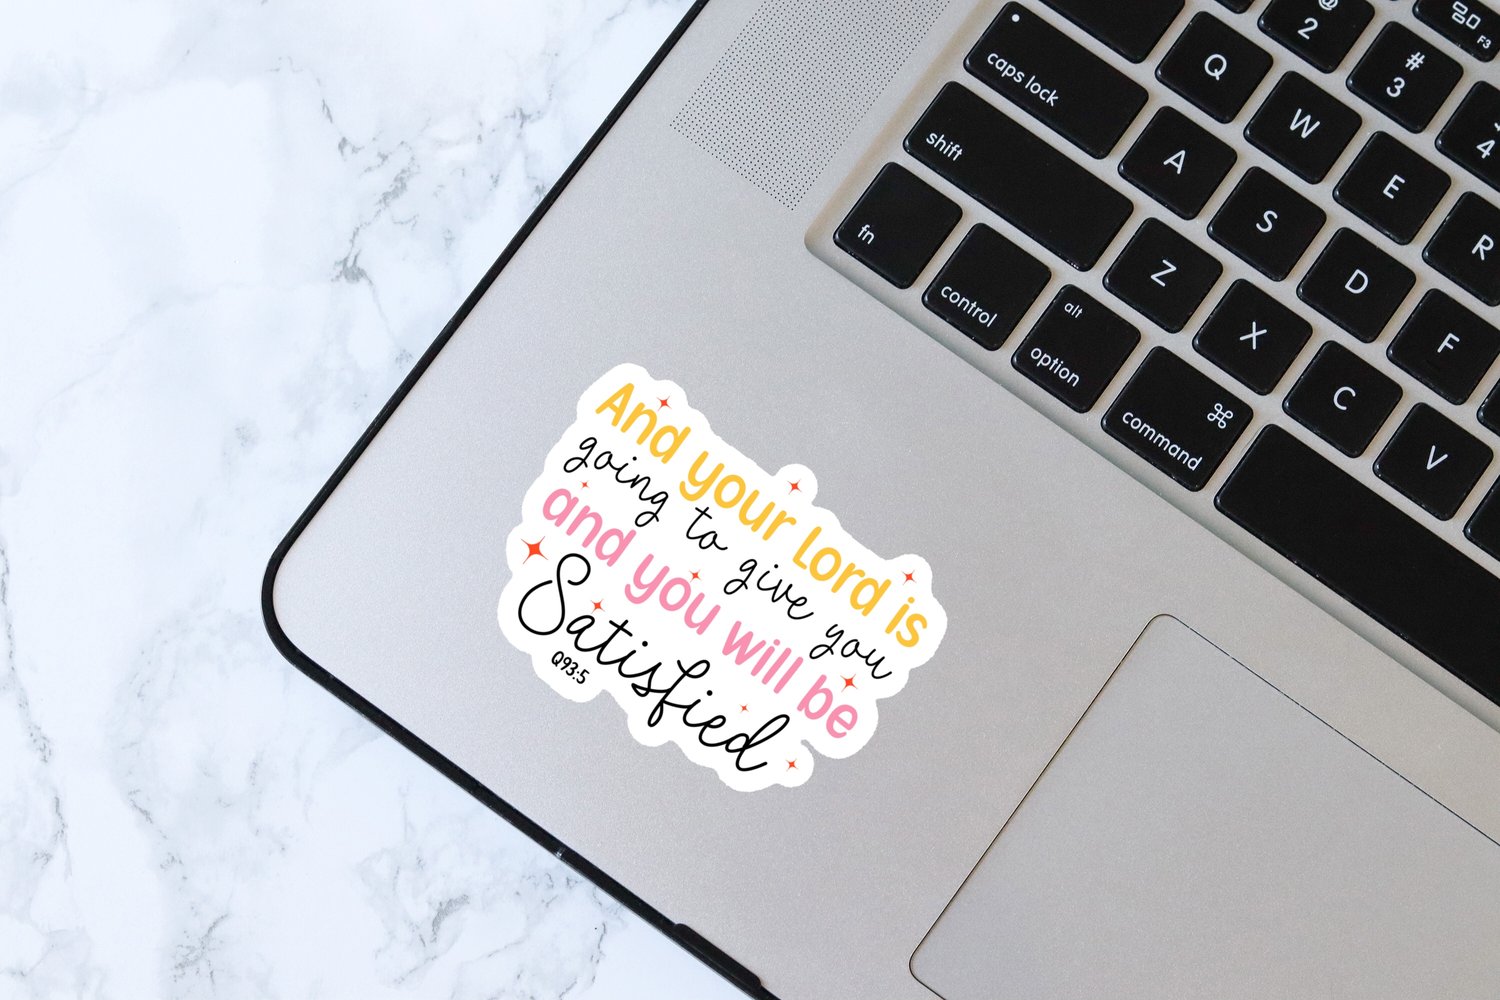 And your Lord is
going to give you
and you will be
Satisfied
Q93:5
@
2
F3
caps lock
Q
#
3
W
4
shift
A
E
S
R
fn
Z
D
control
alt
option
X
F
command
C
V